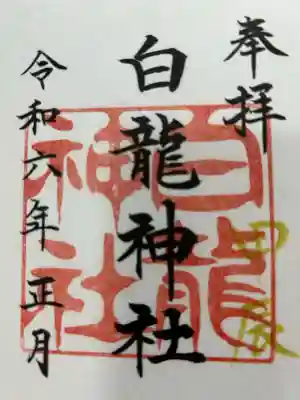 奉拝
白龍神社
令和六年正月
白龍
神社
甲辰